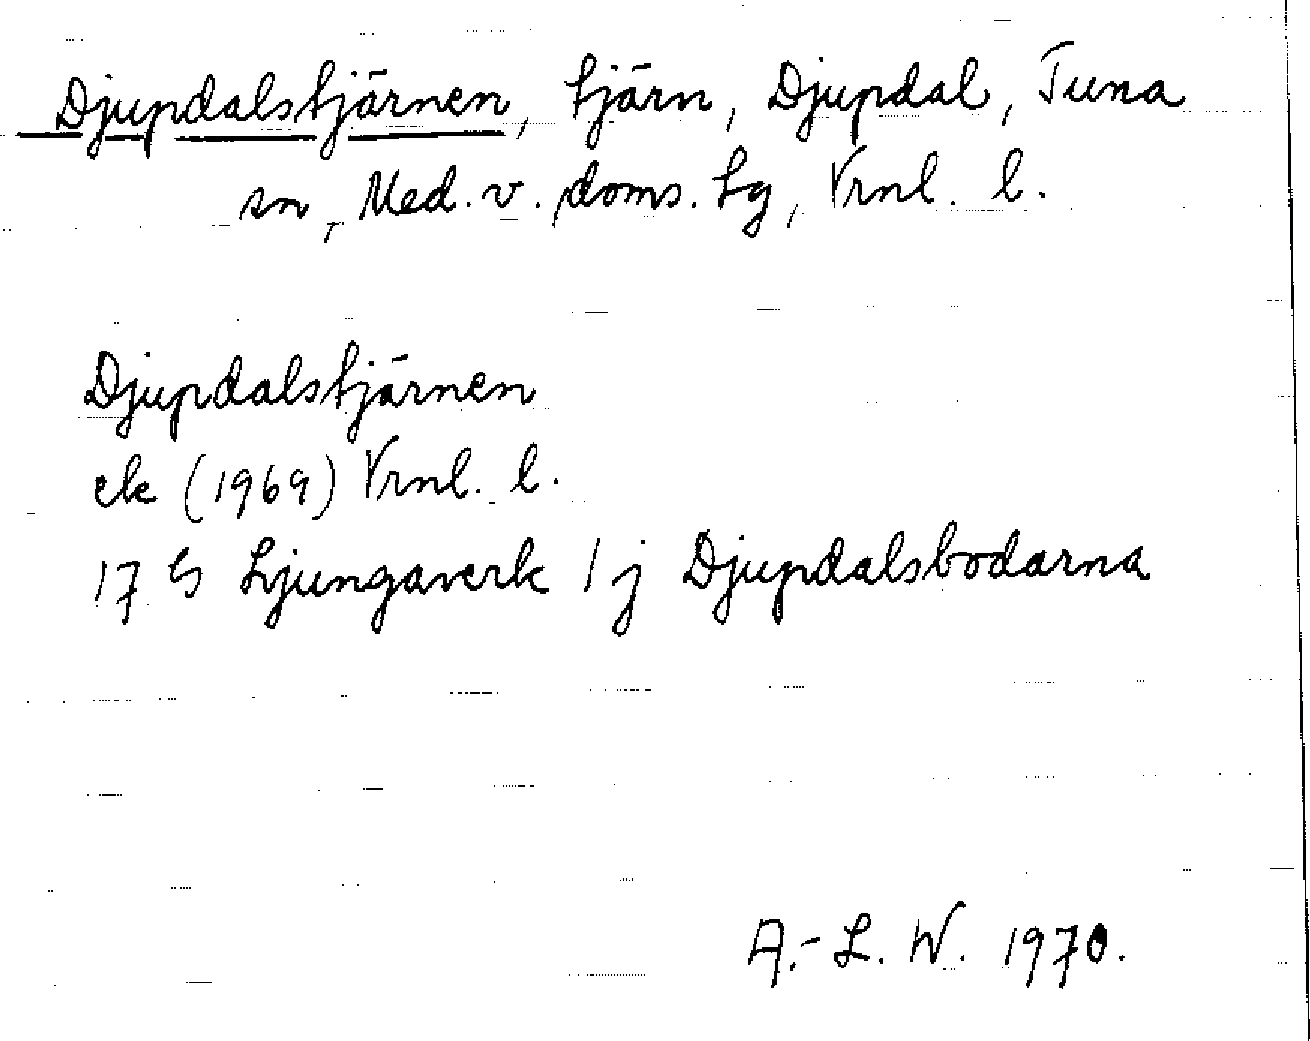 Djupdalstjärnen, tjärn, Djupdal, Tuna
sn, Med. v. doms. tg, Vrnl. l.
Djupdalstjärnen
ek (1969) Vrnl. l.
17 G Ljungaverk 1 j Djupdalsbodarna
A.-L. W. 1970.